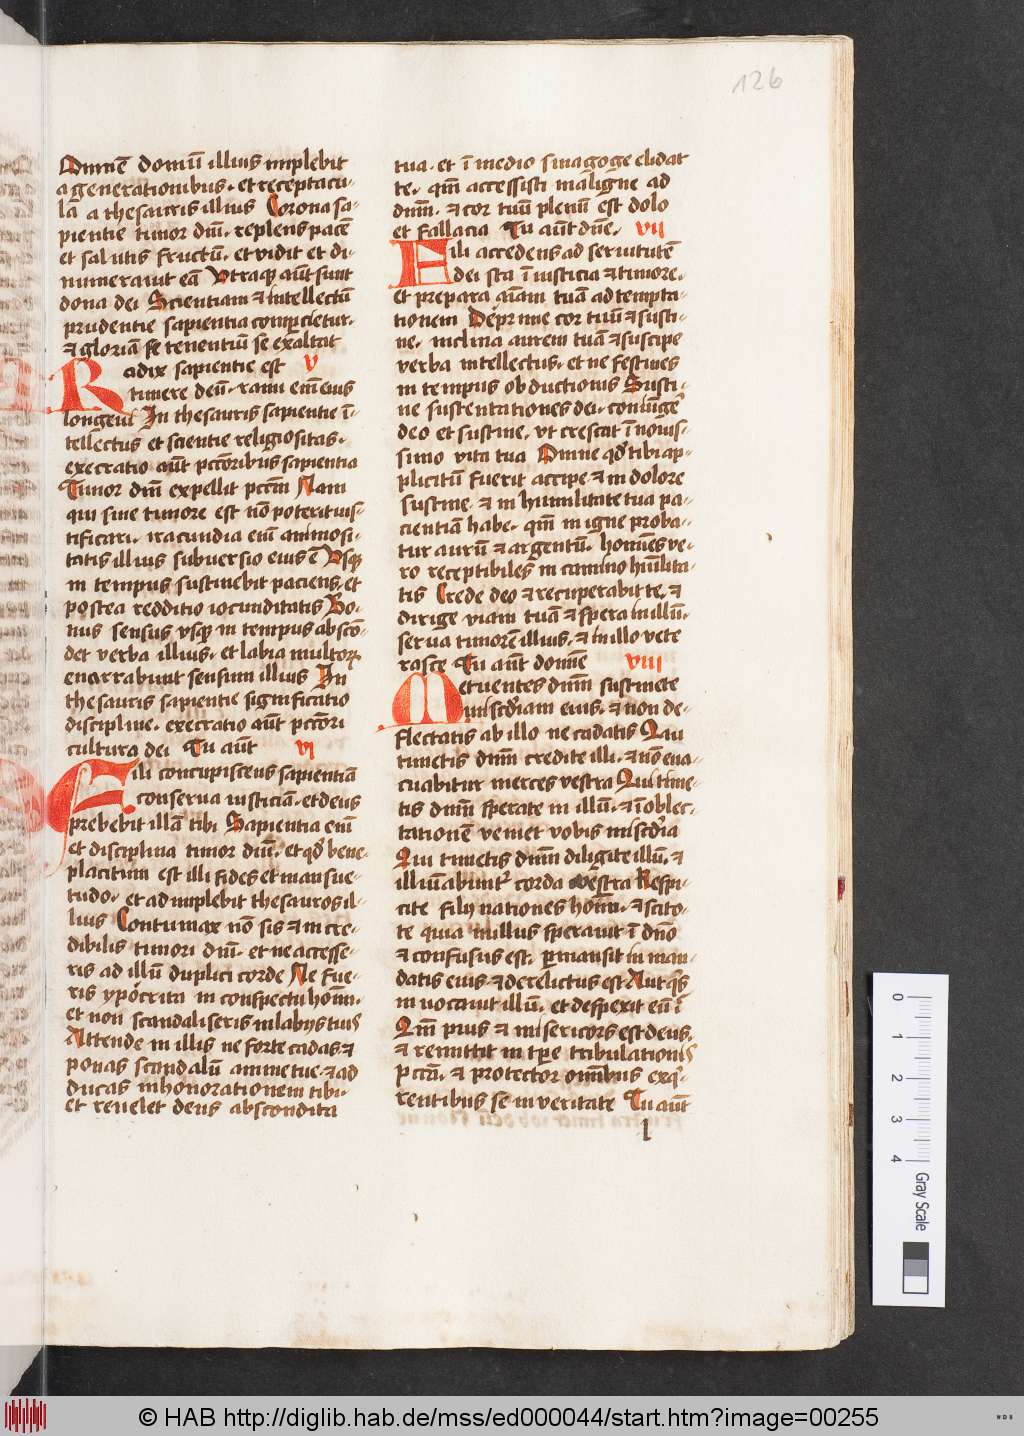 126
Omnē domū illius implebit
a generationibus · et receptacu-
la a thesauris illius Corona sa-
pientie timor dn̄i · replens pacē
et salutis fructū · et vidit et di-
numerauit eā Vtraqꝫ aūt sunt
dona dei Scientiam ⁊ intellectū
prudentie sapientia comp̄cietur ·
⁊ gloriā se tenentiū se exaltat
Radix sapientie est v
timere deū · rami em̄ eius
longeui In thesauris sapientie ī-
tellectus et scientie religiositas ·
execratio aūt pctōribus sapientia
Timor dn̄i expellit pctm̄ Nam
qui sine timore est nō poterit ius-
tificari · iracundia em̄ animosi-
tatis illius subuersio eius ē Vsqꝫ
in tempus sustinebit paciens · et
postea redditio iocunditatis Bo-
nus sensus vsqꝫ in tempus abscō-
det verba illius · et labia multoꝝ
enarrabunt sensum illius In
thesauris sapientie significatio
discipline · execratio aūt pctōri
cultura dei Tu aūt vi
Fili concupiscens sapientiā
conserua iusticiā · et deus
prebebit illā tibi Sapientia em̄
et disciplina timor dn̄i · et qđ bene-
placitum est illi fides et mansue-
tudo · et adimplebit thesauros il-
lius Contumax nō sis ⁊ incre-
dibilis timori dn̄i · et ne accesse-
ris ad illū duplici corde Ne fue-
ris ypocrita in conspectu hoīm ·
et non scandaliseris in labijs tuis
Attende in illis ne forte cadas ⁊
ponas scandalū anime tue · ⁊ ad
ducas inhonorationem tibi ·
et reuelet deus abscondita
tua · et ī medio sinagoge elidat
te · qm̄ accessisti maligne ad
dnm̄ · ⁊ cor tuū plenū est dolo
et fallacia Tu aūt dn̄e · vii
Fili accedens ad seruitutē
dei sta ī iusticia ⁊ timore ·
et prepara aīam tuā ad tempta-
tionem Deprime cor tuū ⁊ susti-
ne · inclina aurem tuā ⁊ suscipe
verba intellectus · et ne festines
in tempus obductionis Susti-
ne sustentationes dei · coniūge'
deo et sustine · vt crescat ī nouis-
simo vita tua Omne qđ tibi ap-
plicitū fuerit accipe ⁊ in dolore
sustine · ⁊ in humilitate tua pa-
cientiā habe · qm̄ in igne proba-
tur aurū ⁊ argentū · homīes ve-
ro receptibiles in camino hūilita-
tis Crede deo ⁊ recuperabit te · ⁊
dirige viam tuā ⁊ spera in illū ·
serua timorē illius · ⁊ in illo vete
rasce Tu aūt domīe viii
Metuentes dnm̄ sustinete
miscdīam eius · ⁊ non de-
flectatis ab illo ne cadatis Qui
timetis dnm̄ credite illi · ⁊ nō eua-
cuabitur merces vestra Qui time-
tis dnm̄ sperate in illū · ⁊ ī oblec-
tationē veniet vobis miscdīa
Qui timetis dnm̄ diligite illū · ⁊
illuīabunt' corda vestra Respi-
cite filij nationes hoīm · ⁊ scito-
te quia nullus sperauit ī dn̄o
⁊ confusus est · ꝑmansit in man-
datis eius ⁊ derelictus est Aut qs
inuocauit illū · et despexit eū ī
Qm̄ pius ⁊ misericors est deus ·
⁊ remittit in tp̄e tribulationis
pctā · ⁊ protector omībus exqi-
rentibus se in veritate Tu aūt
l
0 1 2 3 4 Gray Scale
© HAB http://diglib.hab.de/mss/ed000044/start.htm?image=00255